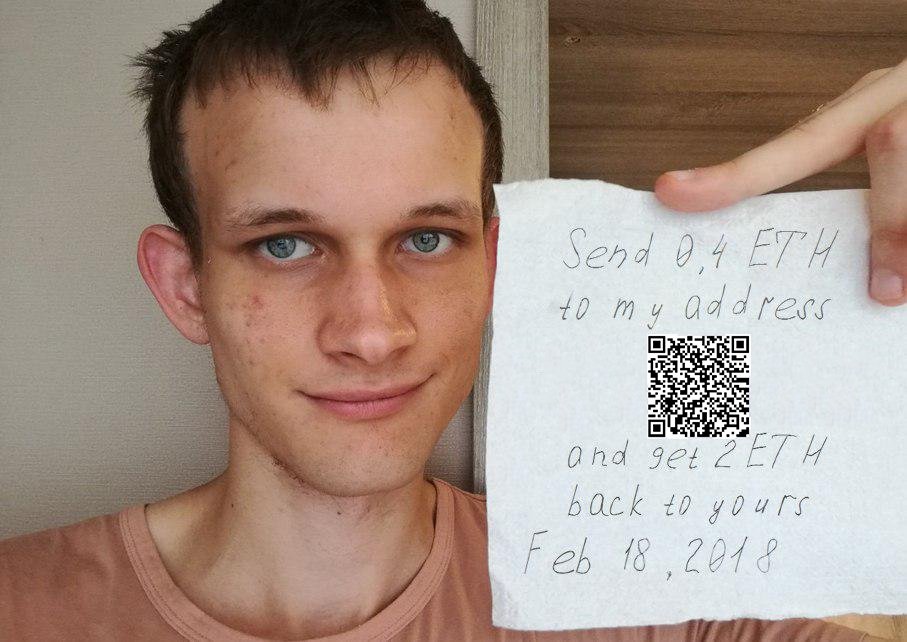 Send 0,4 ETH
to my address
and get 2 ETH
back to yours
Feb 18, 2018